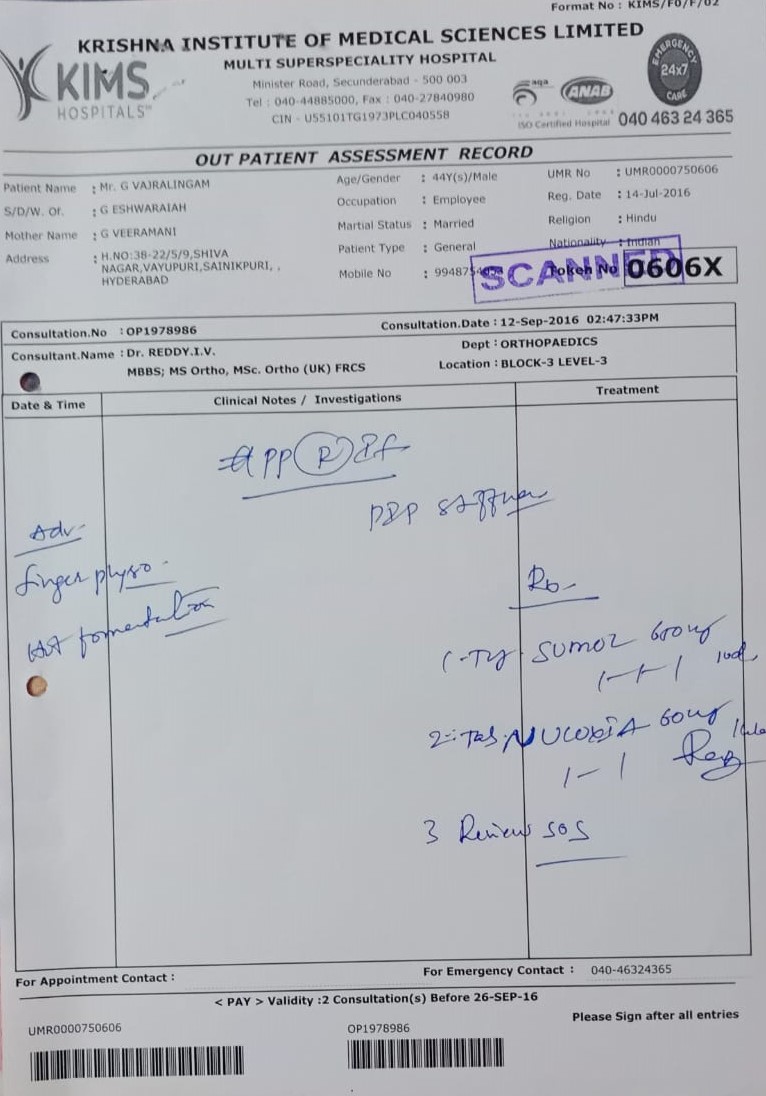 Format No : KIMS/F0/F/02
KRISHNA INSTITUTE OF MEDICAL SCIENCES LIMITED
MULTI SUPERSPECIALITY HOSPITAL
KIMS
HOSPITALS
Minister Road, Secunderabad - 500 003
Tel : 040-44885000, Fax : 040-27840980
CIN - U55101TG1973PLC040558
aqa
ANAB
ISO Certified Hospital
EMERGENCY
24x7
CARE
040 463 24 365
OUT PATIENT ASSESSMENT RECORD
Patient Name : Mr. G VAJRALINGAM
S/D/W. Of. : G ESHWARAIAH
Mother Name : G VEERAMANI
Address : H.NO:38-22/5/9,SHIVA
NAGAR,VAYUPURI,SAINIKPURI, ,
HYDERABAD
Age/Gender : 44Y(s)/Male
Occupation : Employee
Martial Status : Married
Patient Type : General
Mobile No : 99487
UMR No : UMR0000750606
Reg. Date : 14-Jul-2016
Religion : Hindu
Nationality : Indian
Token No 0606X
SCANNED
Consultation.No : OP1978986
Consultation.Date : 12-Sep-2016 02:47:33PM
Consultant.Name : Dr. REDDY.I.V.
MBBS; MS Ortho, MSc. Ortho (UK) FRCS
Dept : ORTHOPAEDICS
Location : BLOCK-3 LEVEL-3
Date & Time
Clinical Notes / Investigations
Treatment
PP R
stiffness
Adv-
finger physo-
Hot fomentation
1-
SUMO
1-1-1
2-
NUCOXIA 60mg
1-1
3 Review SOS
For Appointment Contact :
For Emergency Contact : 040-46324365
< PAY > Validity :2 Consultation(s) Before 26-SEP-16
Please Sign after all entries
UMR0000750606
OP1978986